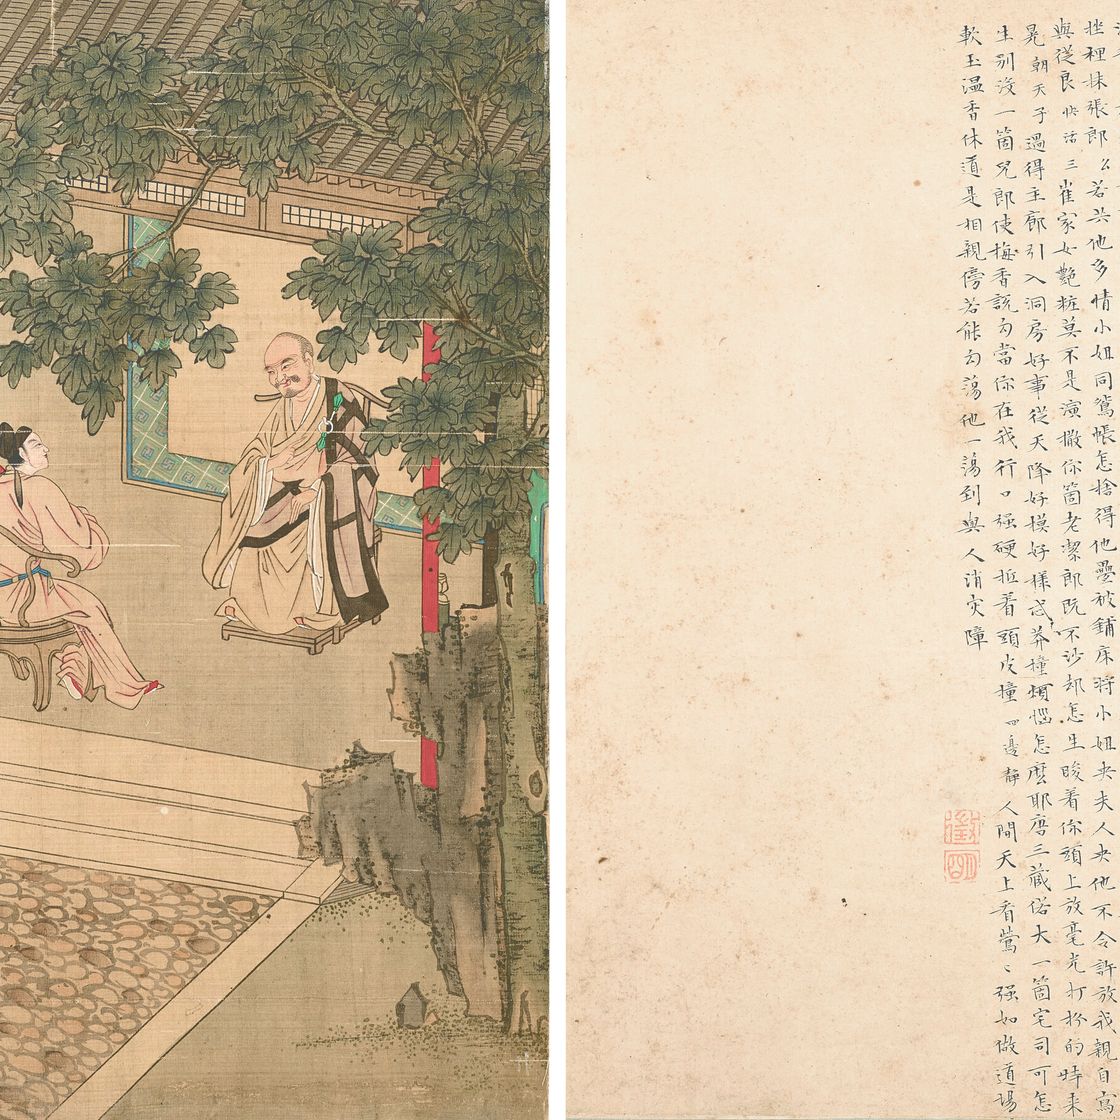 挫裡抹張郎 么 若共他多情小姐同鴛帳怎捨得他疊被鋪床將小姐央夫人央他不令許放我親自寫
與從良 快活三 崔家女艷粧莫不是演撒你箇老潔郎既不沙却怎生睃着你頭上放毫光打扮的特來
晃 朝天子 過得主廊引入洞房好事從天降好模好樣忒莽撞煩惱怎麼耶唐三藏偌大一箇宅司可怎
生別沒一箇兒郎使梅香說勾當你在我行口強硬抵着頭皮撞 四邊靜 人間天上看鶯〻強如做道場
軟玉温香休道是相親傍若能勾蕩他一蕩到與人消灾障
徵明